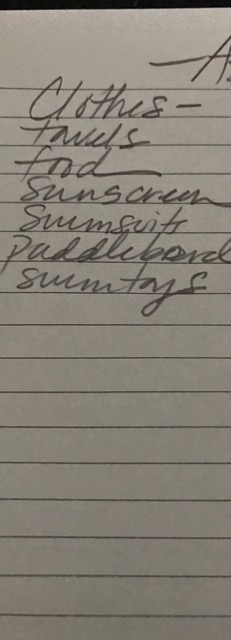 Clothes -
towels
food
Sunscreen
Swimsuits
paddleboard
swimtoys